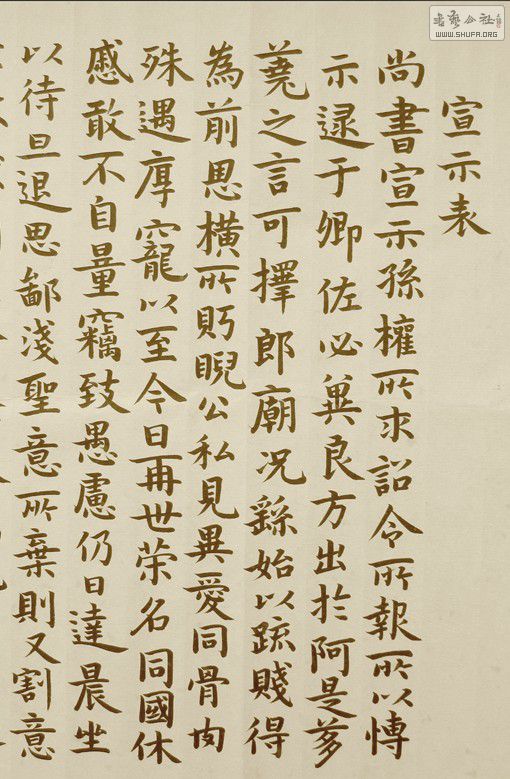 書艺公社
WWW.SHUFA.ORG
宣示表
尚書宣示孫權所求詔令所報所以博
示逮于卿佐必冀良方出於阿是芻
蕘之言可擇郎廟况繇始以疏賤得
為前恩橫所眄睨公私見異愛同骨肉
殊遇厚寵以至今日再世荣名同國休
慼敢不自量竊致愚慮仍日達晨坐
以待旦退思鄙淺聖意所棄則又割意